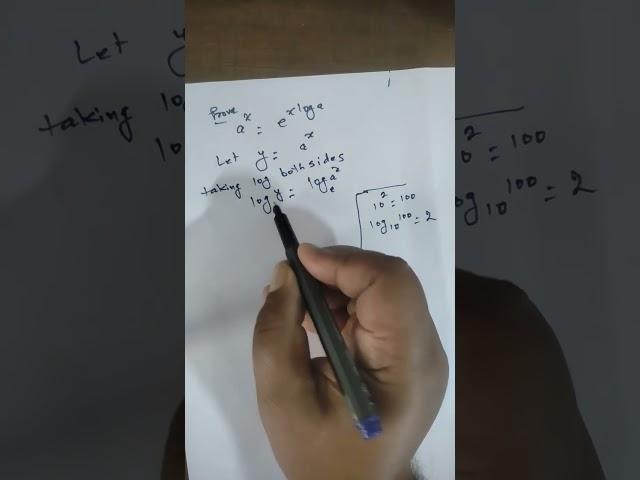 Prove
a^x = e^{x log a}
Let y = a^x
taking log both sides
log y = log_e a^x
10^2 = 100
log_{10} 100 = 2